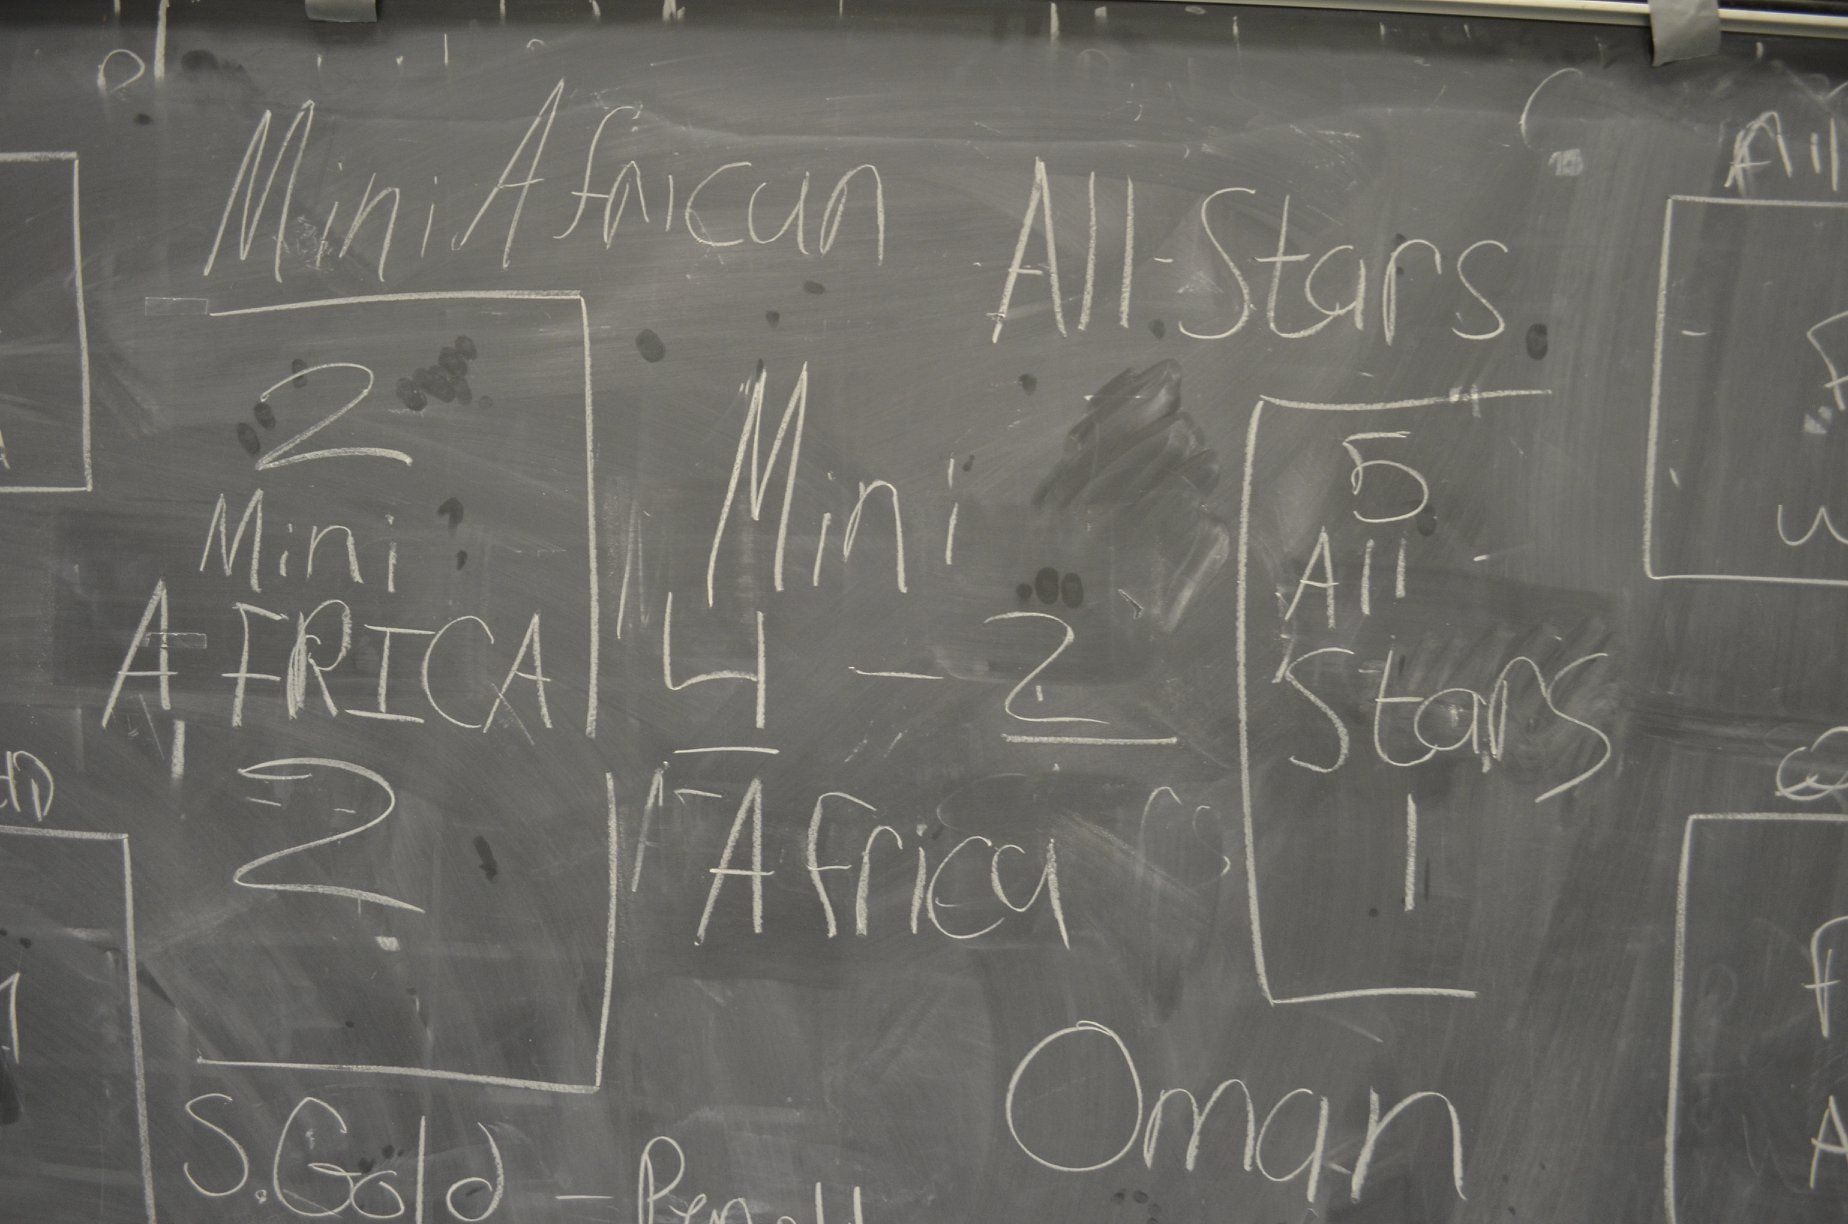 Mini African All-Stars
2
Mini
AFRICA
2
Mini
4 - 2
Africa
5
All
Stars
1
Oman
S.Gold -